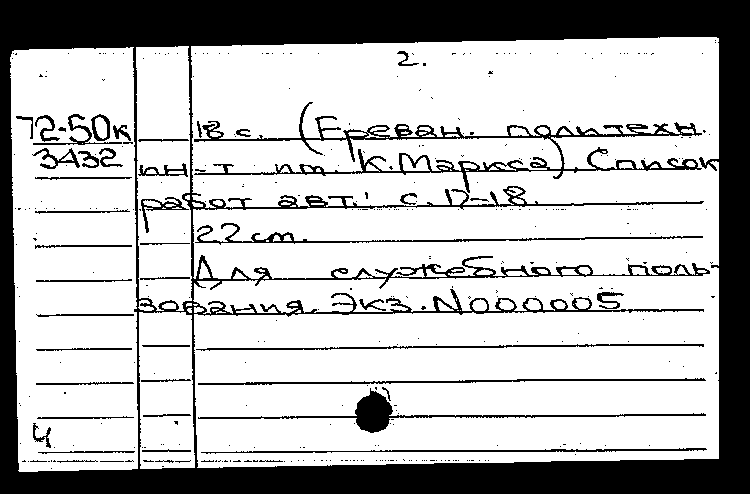 2.
72-50к 18 с. (Ереван. политехн.
3432 ин-т им. К.Маркса). Список
работ авт.: с. 17-18.
22 cm.
Для служебного поль-
зования. Экз. N000005
4